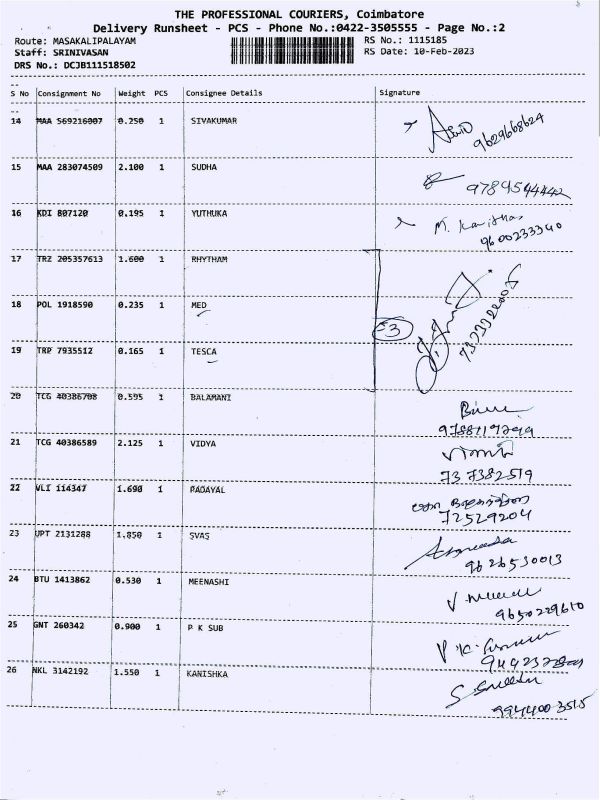 THE PROFESSIONAL COURIERS, Coimbatore
Delivery Runsheet - PCS - Phone No.:0422-3505555 - Page No.:2
Route: MASAKALIPALAYAM
RS No.: 1115185
Staff: SRINIVASAN
RS Date: 10-Feb-2023
DRS No.: DCJB111518502
S No Consignment No Weight PCS Consignee Details Signature
14 MAA 569216007 0.250 1 SIVAKUMAR
9629668624
15 MAA 283074509 2.100 1 SUDHA
9789544442
16 KDI 807120 0.195 1 YUTHUKA
M. Kavithas
9600233340
17 TRZ 205357613 1.600 1 RHYTHAM
18 POL 1918590 0.235 1 MED
=3
19 TRP 7935512 0.165 1 TESCA
20 TCG 40386708 0.595 1 BALAMANI
21 TCG 40386589 2.125 1 VIDYA
737382519
22 VLI 114347 1.690 1 PADAYAL
72529204
23 UPT 2131288 1.850 1 SVAS
9626530013
24 BTU 1413862 0.530 1 MEENASHI
9650229610
25 GNT 260342 0.900 1 P K SUB
26 NKL 3142192 1.550 1 KANISHKA
9944003515